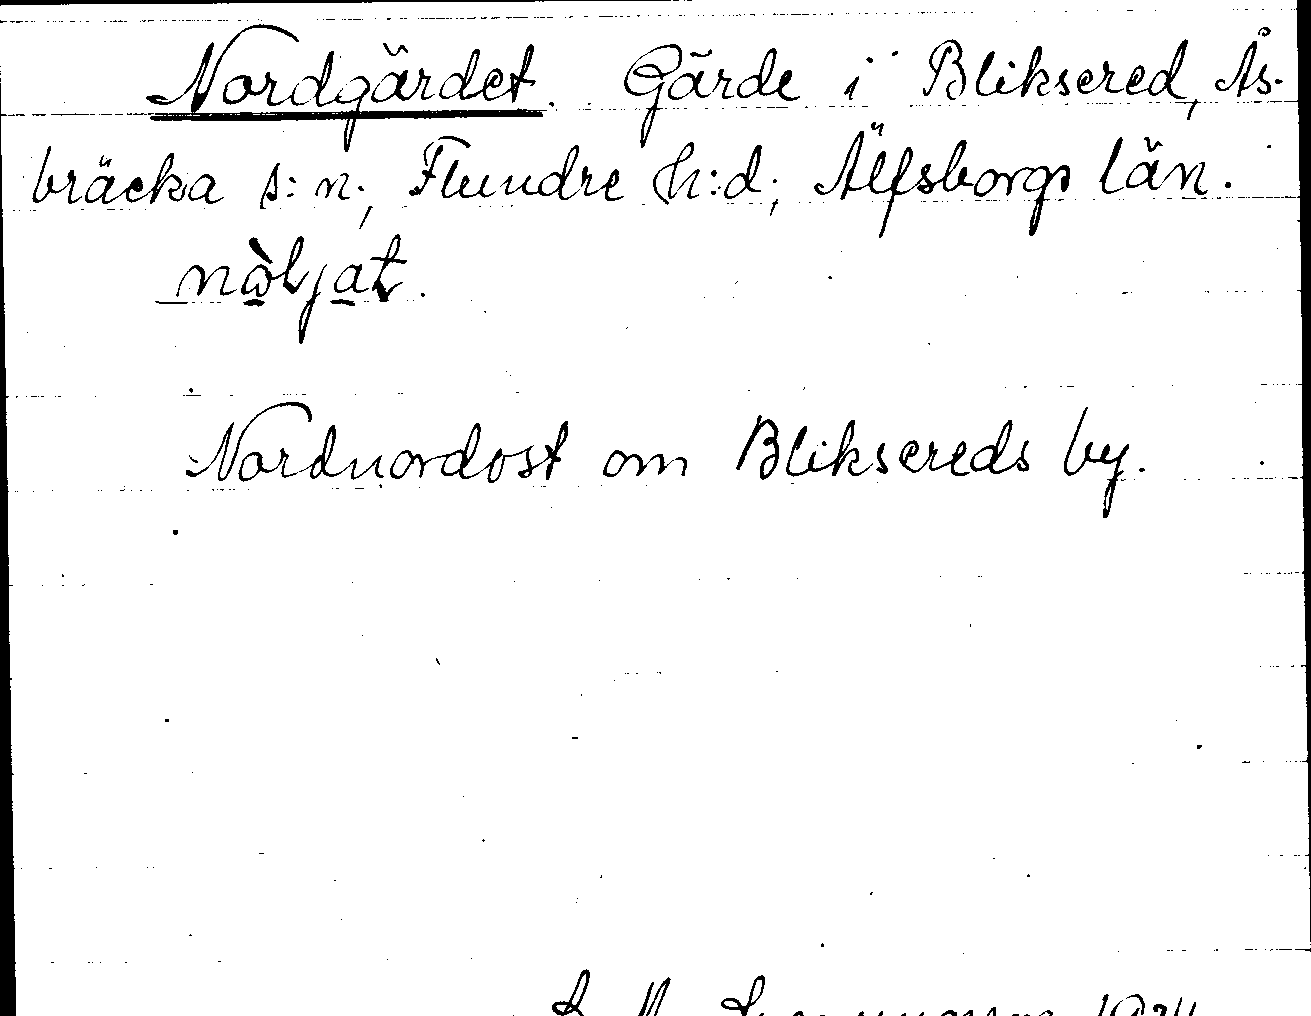 Nordgärdet. Gärde i Bliksered, Ås-
bräcka s:n, Flundre h:d, Älfsborgs län.
nòljat.
Nordnordost om Bliksereds by.